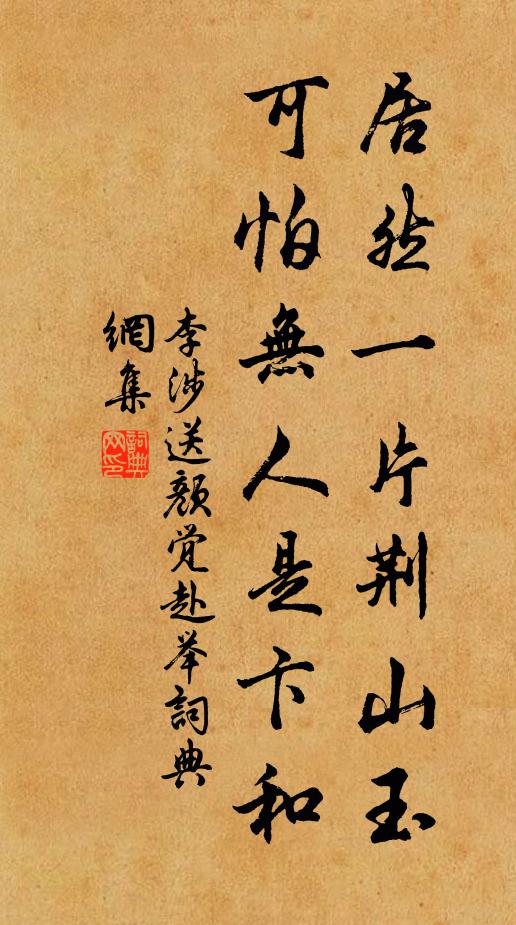 居然一片荆山玉
可怕無人是卞和
李涉送顏觉赴举詞典
網集
詞典網印